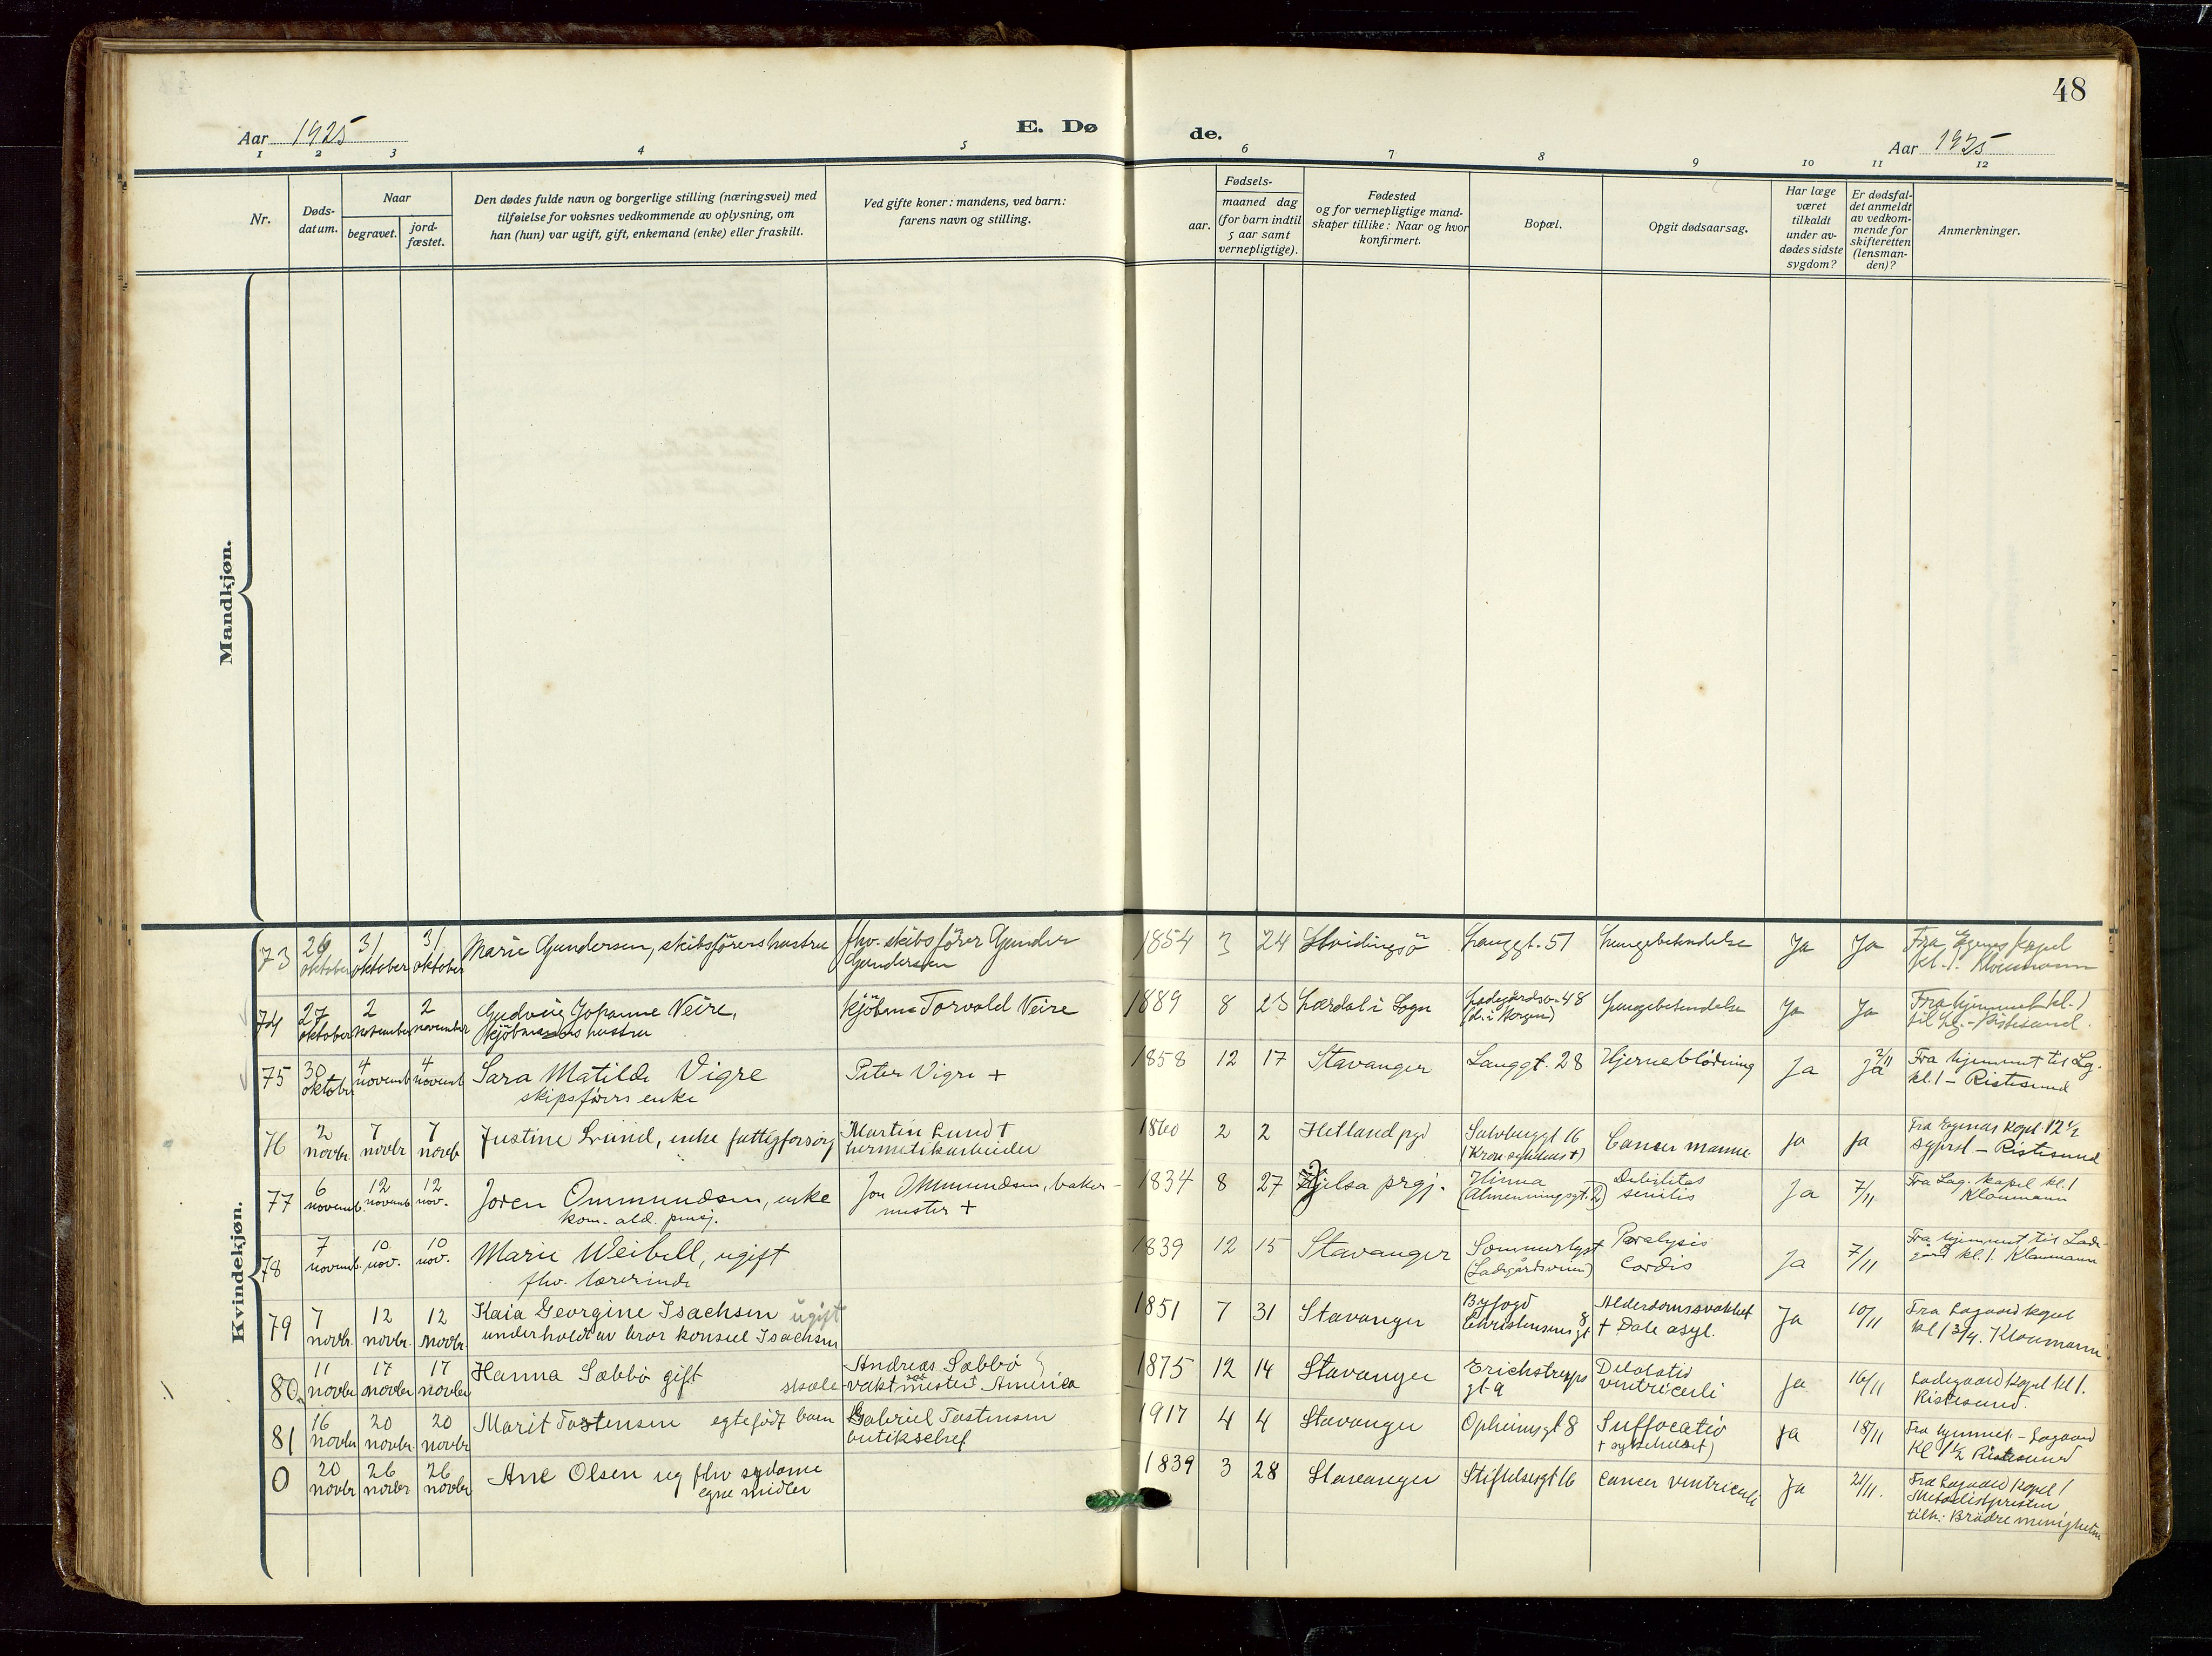 48
Aar 1925
E. Dø
de.
Aar 1925
1 2 3 4 5 6 7 8 9 10 11 12
Nr.
Døds-
datum.
Naar
begravet.
jord-
fæstet.
Den dødes fulde navn og borgerlige stilling (næringsvei) med
tilføielse for voksnes vedkommende av oplysning, om
han (hun) var ugift, gift, enkemand (enke) eller fraskilt.
Ved gifte koner: mandens, ved barn:
farens navn og stilling.
Fødsels-
aar.
maaned dag
(for barn indtil
5 aar samt
vernepligtige).
Fødested
og for vernepligtige mand-
skaper tillike: Naar og hvor
konfirmert.
Bopæl.
Opgit dødsaarsag.
Har læge
været
tilkaldt
under av-
dødes sidste
sygdom?
Er dødsfal-
det anmeldt
av vedkom-
mende for
skifteretten
(lensman-
den)?
Anmerkninger.
Mandkjøn.
Kvindekjøn.
73
oktober
31
oktober
31
oktober
Marie Gundersen, skibsførers hustru
fhv. skibsfører Gunder
Gundersen
1854 3 24
Hvidingsö
Langgt. 51
Lungebetendelse
Ja
Ja
Fra Egenes kapel
kl. 1. Kloumann
74
27
oktober
2
november
2
november
Gudveig Johanne Veire,
kjöbmands hustru
Kjöbm Torvald Veire
1889 8 23
Lærdal i Sogn
Ladegårdsv. 48
Lungebetendelse
Ja
Ja
Fra hjemmet kl. 1
til Lg. - Ristesund.
75
30
oktober
4
novemb
4
novemb
Sara Matilde Vigre
skipsförers enke
Peter Vigre +
1858 12 17
Stavanger
Langgt. 28
Hjerneblödning
Ja
2/11
Ja
Fra hjemmet til Lg.
kl. 1 - Ristesund
76
2
novbr
7
novbr
7
novb
Justine Lund, enke fattigforsörg
Martin Lund +
hermetikarbeider
1860 2 2
Hetland pgd
16
Cancer mamme
Ja
Ja
Fra Egenes Kapel 12 1/2
- Ristesund
77
6
novemb.
12
novemb.
12
nov.
Joren Ommundsen, enke
kom. ald. pensj.
Jon Ommundsen, baker-
mester +
1834 8 27
Jelsa prgj.
Hinna
(Almenningsgt. 2)
Debilitas
senilis
Ja
7/11
Fra Lag. kapel kl. 1
Kloumann
78
7
novemb.
10
nov.
10
nov.
Marie Weibell, ugift
fhv. lærerinde
1839 12 15
Stavanger
Sommerlyst
(Ladegårdsveien)
Paralysis
Cordis
Ja
7/11
Fra hjemmet til Lade-
gård kl. 1. Kloumann
79
7
novbr.
12
novbr.
12
novbr.
Kaia Georgine Isachsen ugift
underholdt av bror konsul Isachsen
1851 7 31
Stavanger
Byfogd
Christensens gt 8
Alderdomssvakhet
+ Dale asyl.
Ja
10/11
Fra Lagaard kapel
kl 1 3/4. Kloumann
80
11
novbr
17
novbr
17
novbr
Hanna Sæbbö gift
Andreas Sæbbö
skole-vaktmester America
1875 12 14
Stavanger
Erichstrups
gt 9
Dilatatio
ventriculi
Ja
16/11
Ladegaard Kapel kl 1.
Ristesund.
81
16
novbr
20
novbr.
20
novbr
Marit Tostensen egtefödt barn
Gabriel Tostensen
butikschef
1917 4 4
Stavanger
Opheimsgt 8
Suffocatio
+ sykehuset)
Ja
18/11
Fra hjemmet - Lagaard
Kl 1 1/2 Ristesund
0
20
novbr
26
novbr
26
novbr
Ane Olsen ug fhv sydame
egne midler
1839 3 28
Stavanger
Stiftelsesgt 16
Cancer ventriculi
Ja
21/11.
Fra Lagaard Kapel 1
Metodistpresten
tilh: Brödremenigheten